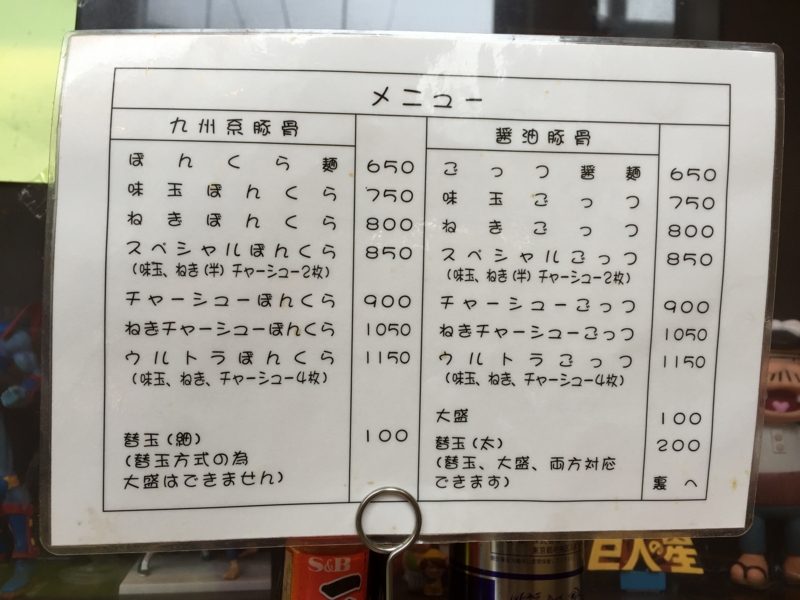 メニュー
九州系豚骨
ぼんくら麺 650
味玉ぼんくら 750
ねぎぼんくら 800
スペシャルぼんくら 850
(味玉、ねぎ(半)チャーシュー2枚)
チャーシューぼんくら 900
ねぎチャーシューぼんくら 1050
ウルトラぼんくら 1150
(味玉、ねぎ、チャーシュー4枚)
替玉(細) 100
(替玉方式の為
大盛はできません)
醤油豚骨
こっつ醤麺 650
味玉こっつ 750
ねぎこっつ 800
スペシャルこっつ 850
(味玉、ねぎ(半)チャーシュー2枚)
チャーシューこっつ 900
ねぎチャーシューこっつ 1050
ウルトラこっつ 1150
(味玉、ねぎ、チャーシュー4枚)
大盛 100
替玉(太) 200
(替玉、大盛、両方対応
できます)
裏へ
S&B
巨人の星